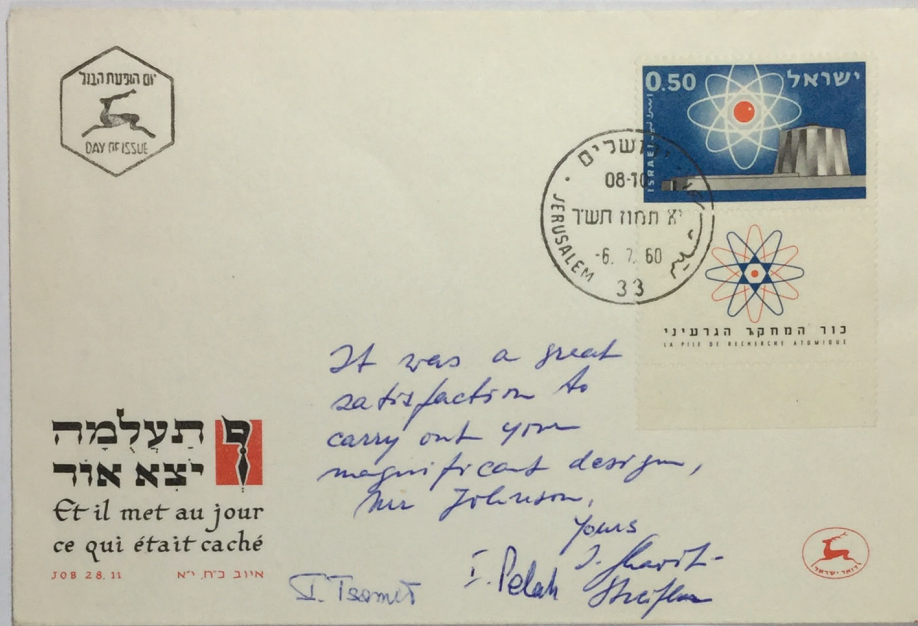 יום הופעת הבול
DAY OF ISSUE
0.50 ישראל
ISRAEL
ירושלים
08-10
יא תמוז תש"ך
-6. 7. 60
JERUSALEM
33
כור המחקר הגרעיני
LA PILE DE RECHERCHE ATOMIQUE
It was a great
satisfaction to
carry out your
magnificent design,
Mr Johnson,
Yours
I. Tsomet
I. Pelah
תַעֲלֻמָה
יֹצִא אוֹר
Et il met au jour
ce qui était caché
JOB 28.11 איוב כ״ח, י״א
דואר ישראל